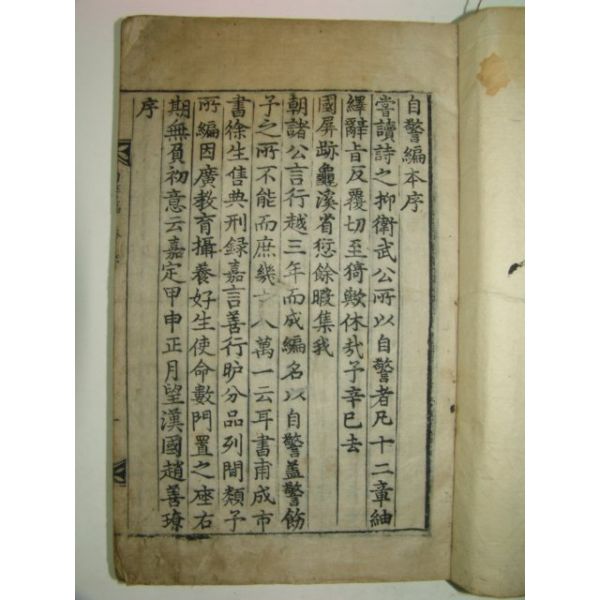 自警編本序
嘗讀詩之抑衛武公所以自警者凡十二章紬
繹辭旨反覆切至猗歟休哉予辛巳去
國屏跡龜溪省愆餘暇集我
朝諸公言行越三年而成編名以自警蓋警飭
子之所不能而庶幾 八萬一云耳書甫成市
書徐生售典刑錄嘉言善行昈分品列間類予
所編因廣教育攝養好生使命數門置之座右
期無負初意云嘉定甲申正月望漢國趙善璙
序